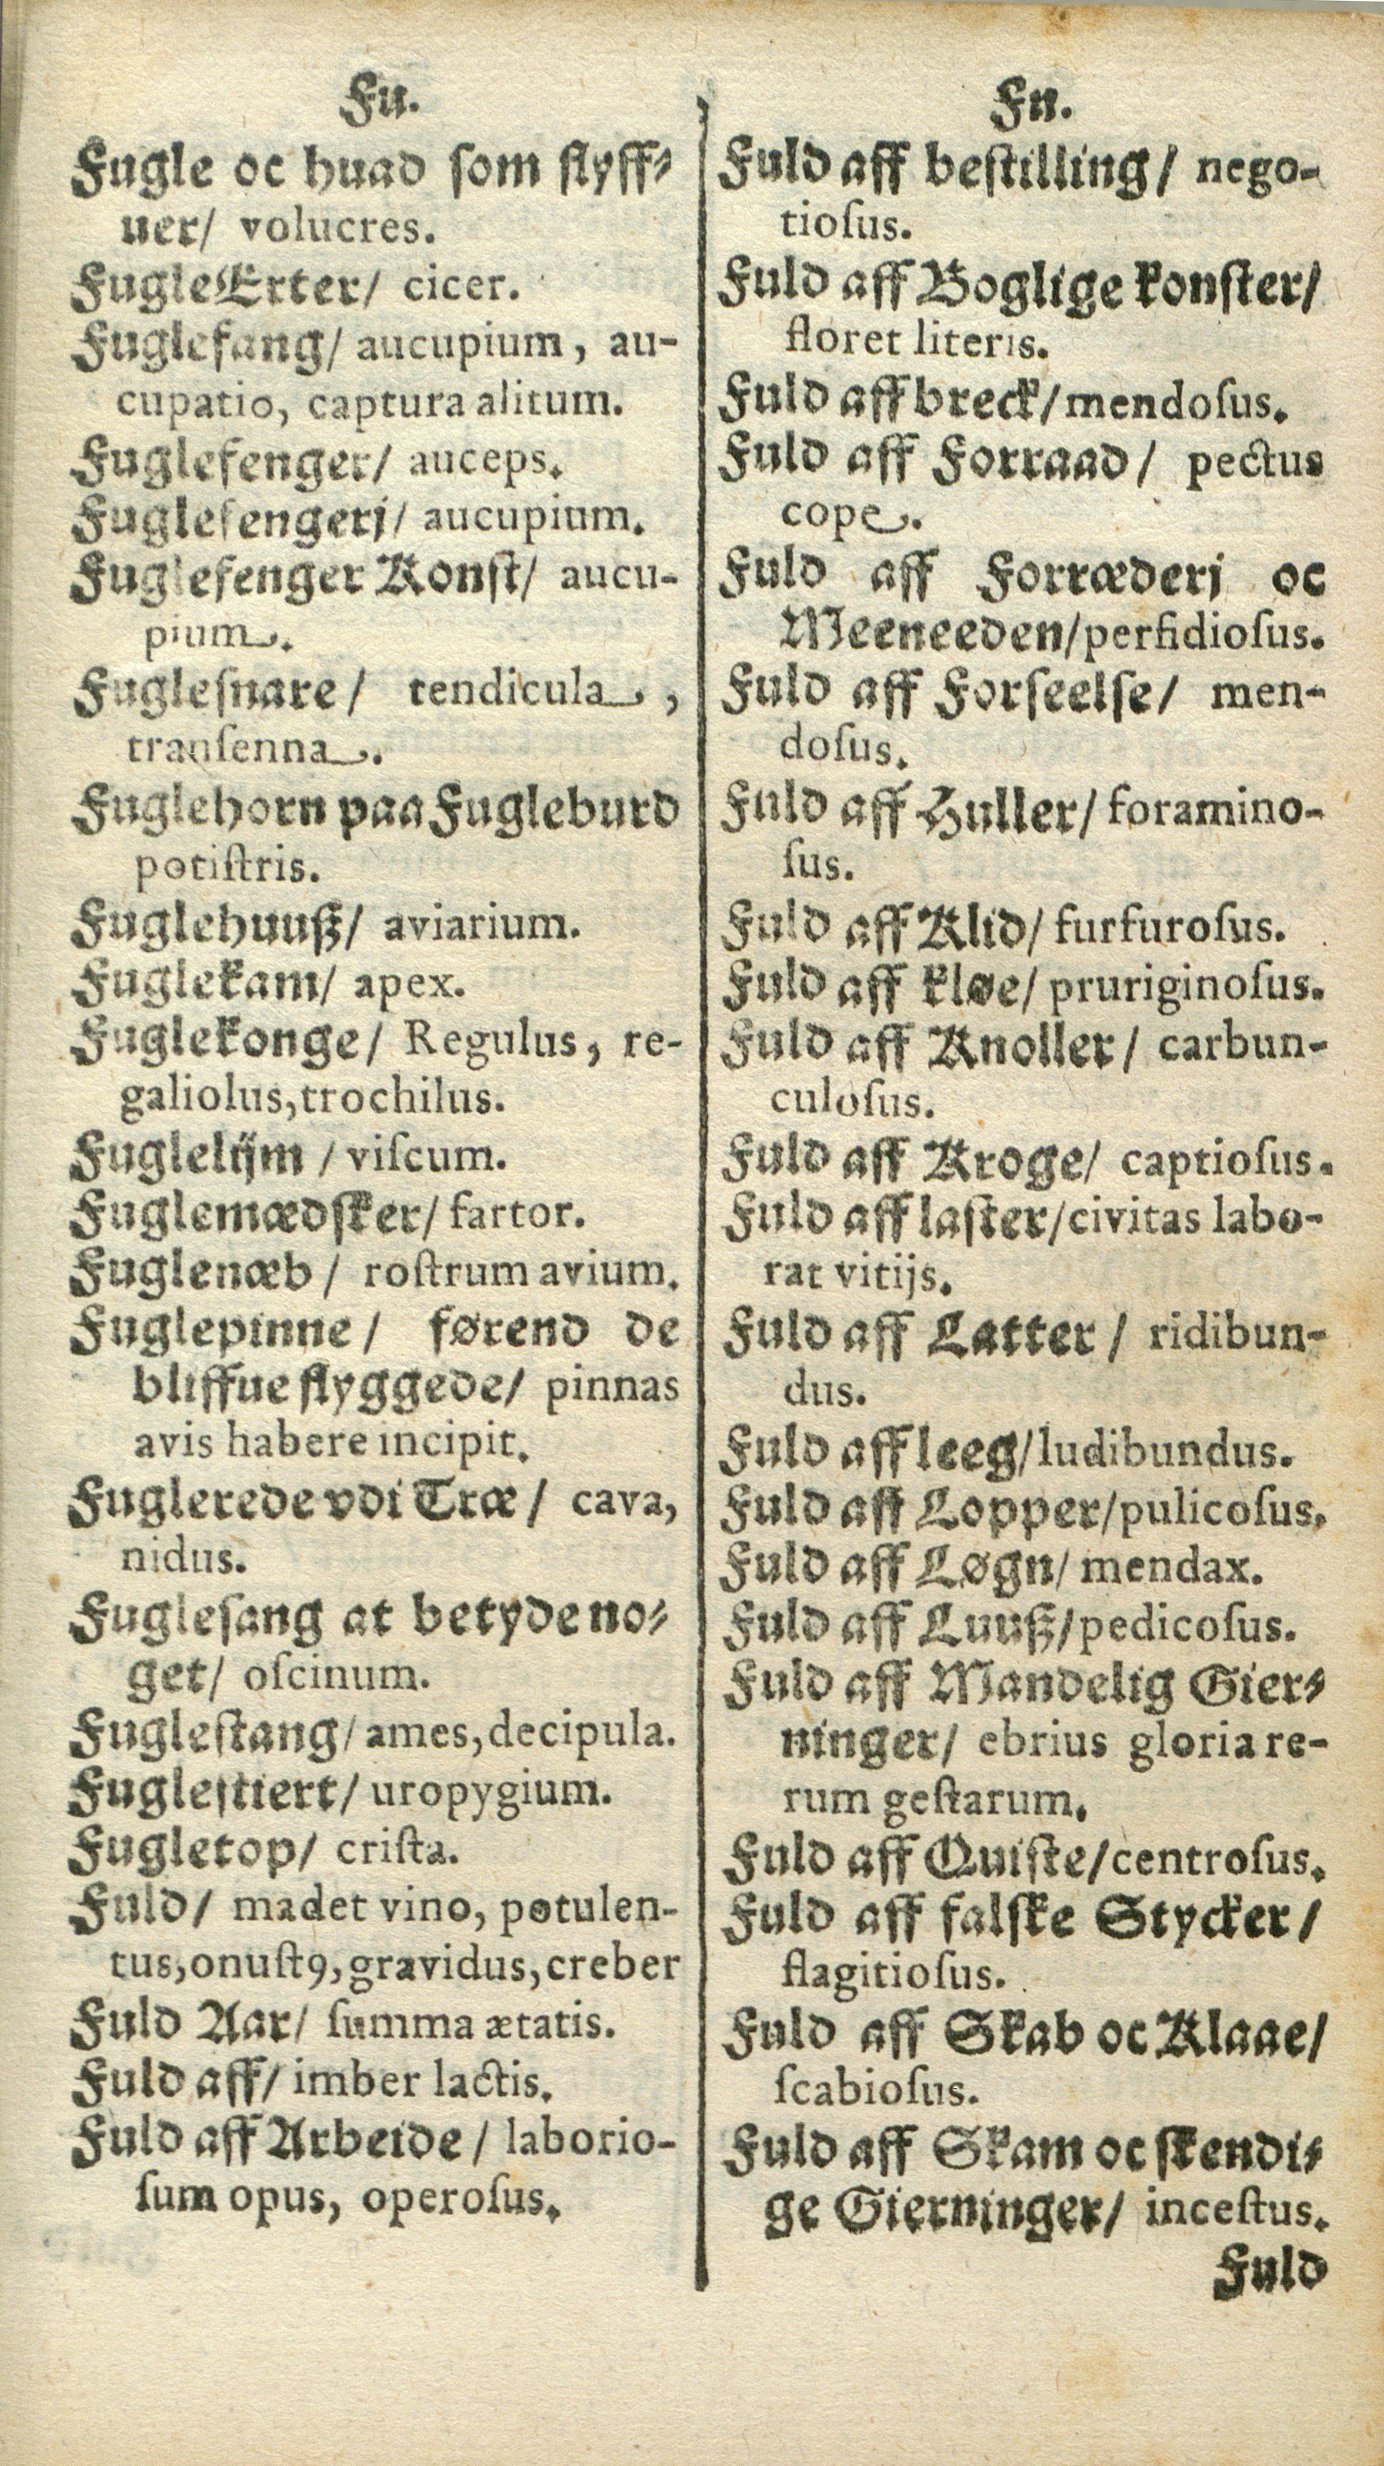 Fu.
Fugle oc huad som flyff⸗
uer/ volucres.
FugleErter/ cicer.
Fuglefang/ aucupium, au-
cupatio, captura alitum.
Fuglefenger/ auceps.
Fuglefengerj/ aucupium.
Fuglefenger Konst/ aucu-
pium.
Fuglesnare/ tendicula,
tranſenna.
Fuglehorn paa Fugleburd
potiſtris.
Fuglehuuß/ aviarium.
Fuglekam/ apex.
Fuglekonge/ Regulus, re-
galiolus, trochilus.
Fuglelijm / viſcum.
Fuglemædsker/ fartor.
Fuglenæb / roſtrum avium.
Fuglepinne / førend de
bliffue flyggede/ pinnas
avis habere incipit.
Fuglerede vdi Træ / cava,
nidus.
Fuglesang at betyde no⸗
get/ oſcinum.
Fuglestang/ ames, decipula.
Fuglestiert/ uropygium.
Fugletop/ criſta.
Fuld/ madet vino, potulen-
tus, onuſt9, gravidus, creber
Fuld Aar/ ſumma ætatis.
Fuld aff/ imber lactis.
Fuld aff Arbeide / laborio-
ſum opus, operoſus.
Fn.
Fuld aff bestilling/ nego-
tioſus.
Fuld aff Boglige konster/
floret literis.
Fuld aff breck/ mendoſus.
Fuld aff Forraad/ pectus
cope.
Fuld aff Forræderj oc
Meeneeden/ perfidioſus.
Fuld aff Forseelse/ men-
doſus.
Fuld aff Huller/ foramino-
ſus.
Fuld aff Klid/ furfuroſus.
Fuld aff kløe/ pruriginoſus.
Fuld aff Knoller/ carbun-
culoſus.
Fuld aff Kroge/ captioſus.
Fuld aff laster/ civitas labo-
rat vitijs.
Fuld aff Latter / ridibun-
dus.
Fuld aff leeg/ ludibundus.
Fuld aff Lopper/ pulicoſus.
Fuld aff Løgn/ mendax.
Fuld aff Luuß/ pedicoſus.
Fuld aff Mandelig Gier⸗
ninger/ ebrius gloria re-
rum geſtarum.
Fuld aff Quiste/ centroſus.
Fuld aff falske Stycker/
flagitioſus.
Fuld aff Skab oc Klaae/
ſcabioſus.
Fuld aff Skam oc skendi⸗
ge Gierninger/ inceſtus.
Fuld